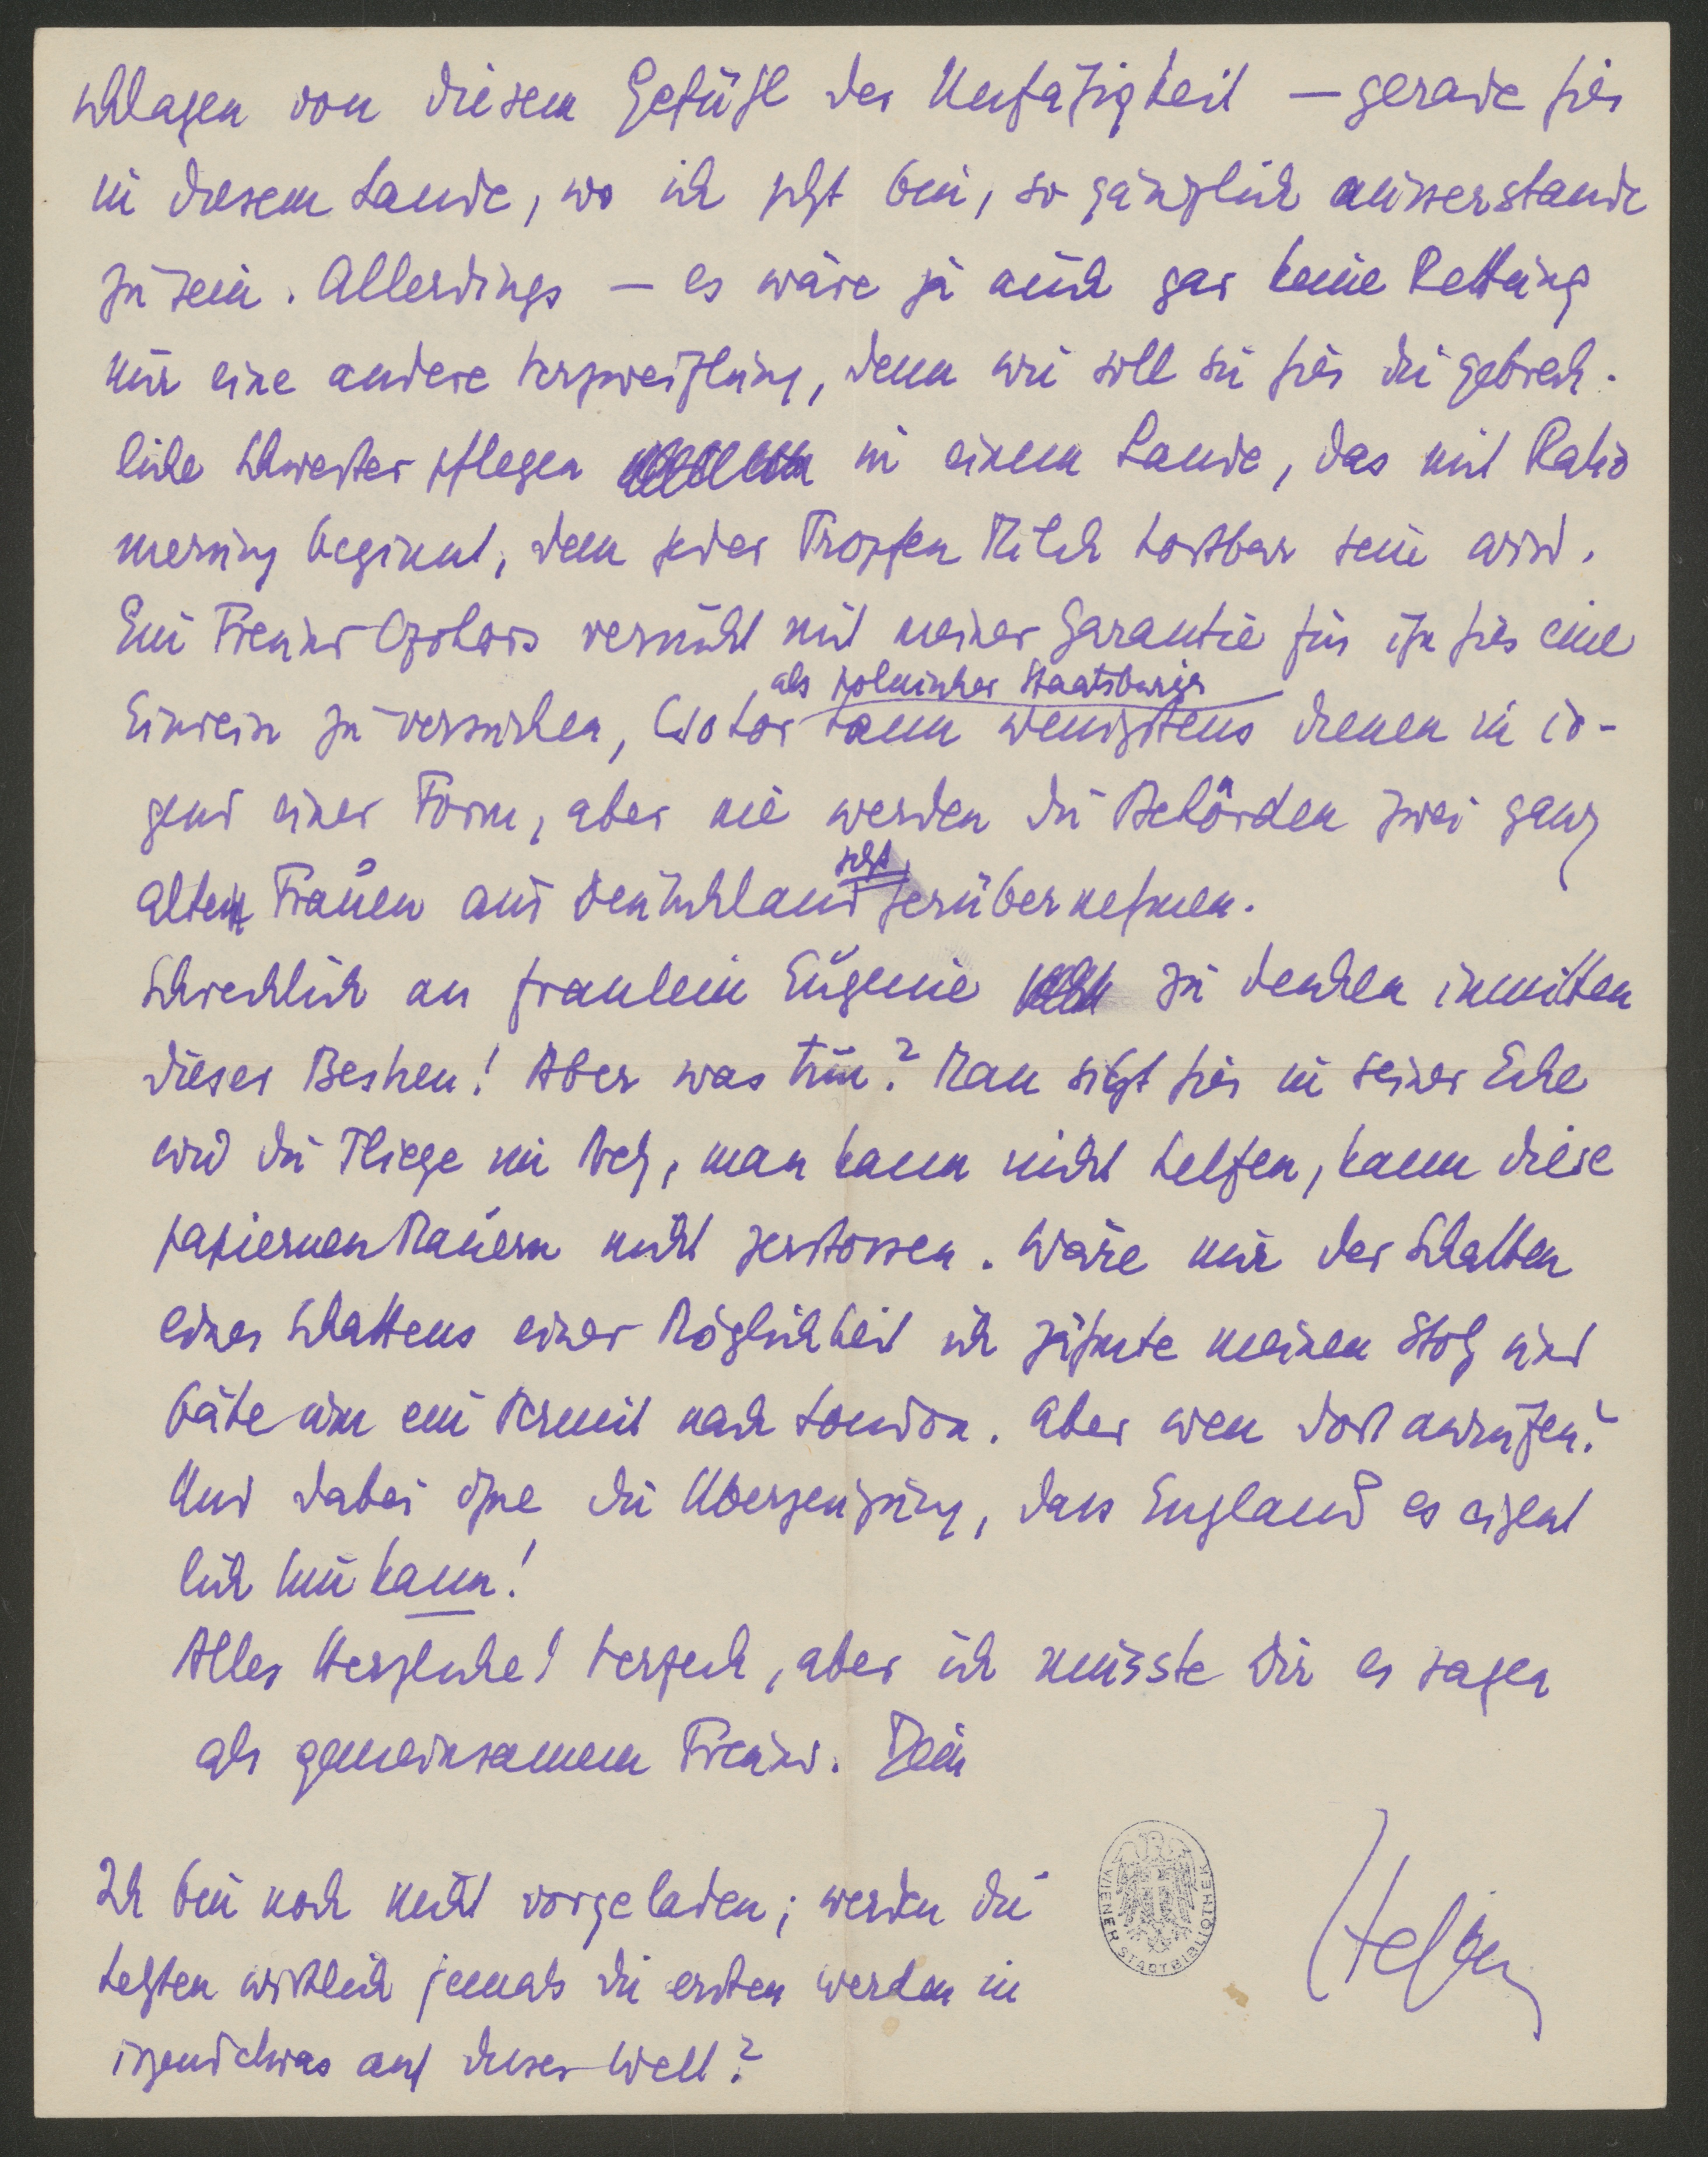 schlagen von diesem Gefühl der Unfähigkeit – gerade hier
in diesem Lande, wo ich jetzt bin, so gänzlich ausserstande
zu sein. Allerdings – es wäre ja auch gar keine Rettung
nur eine andere Verzweiflung, denn wie soll sie hier die gebrech-
liche Schwester pflegen in einem Lande, das mit Ratio
nierung beginnt, dem jeder Tropfen Milch kostbar sein wird.
Ein Freund Czokors versucht mit meiner Garantie für ihn hier eine
als polnischer Staatsbürger
Einreise zu versuchen, Csokor kann wenigstens dienen in ir-
gend einer Form, aber nie werden die Behörden zwei ganz
jetzt
alten Frauen aus Deutschland herübernehmen.
Schrecklich an Fraulein Eugenie zu denken inmitten
dieser Bestien! Aber was tun? Man sitzt hier in seiner Ecke
wie die Fliege im Netz, man kann nicht helfen, kann diese
papiernen Mauern nicht zerstossen. Wäre nur der Schatten
eines Schattens einer Möglichkeit ich zähmte meinen Stolz und
bäte um ein Permit nach London. Aber wen dort anrufen?
Und dabei ohne die Uberzeugung, dass England es eigent
lich tun kann!
Alles Herzliche! Verzeih, aber ich musste Dir es sagen
als gemeinsamem Freund. Dein
Stefan
Ich bin noch nicht vorgeladen; werden die
Letzten wirklich jemals die ersten werden in
irgendetwas auf dieser Welt?
WIENER STADTBIBLIOTHEK